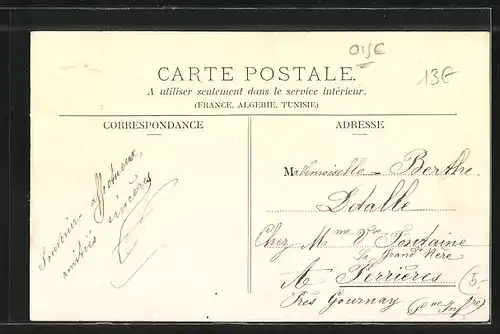 OISE
13E
CARTE POSTALE.
A utiliser seulement dans le service intérieur.
(FRANCE, ALGERIE, TUNISIE)
CORRESPONDANCE
ADRESSE
Souvenir affectueux,
amitiés sincères
Mademoiselle Berthe
Detalle
Chez Mme Vve Fontaine
Sa Grand Mère
A Ferrières
Près Gournay (Sne Infre)
5.-